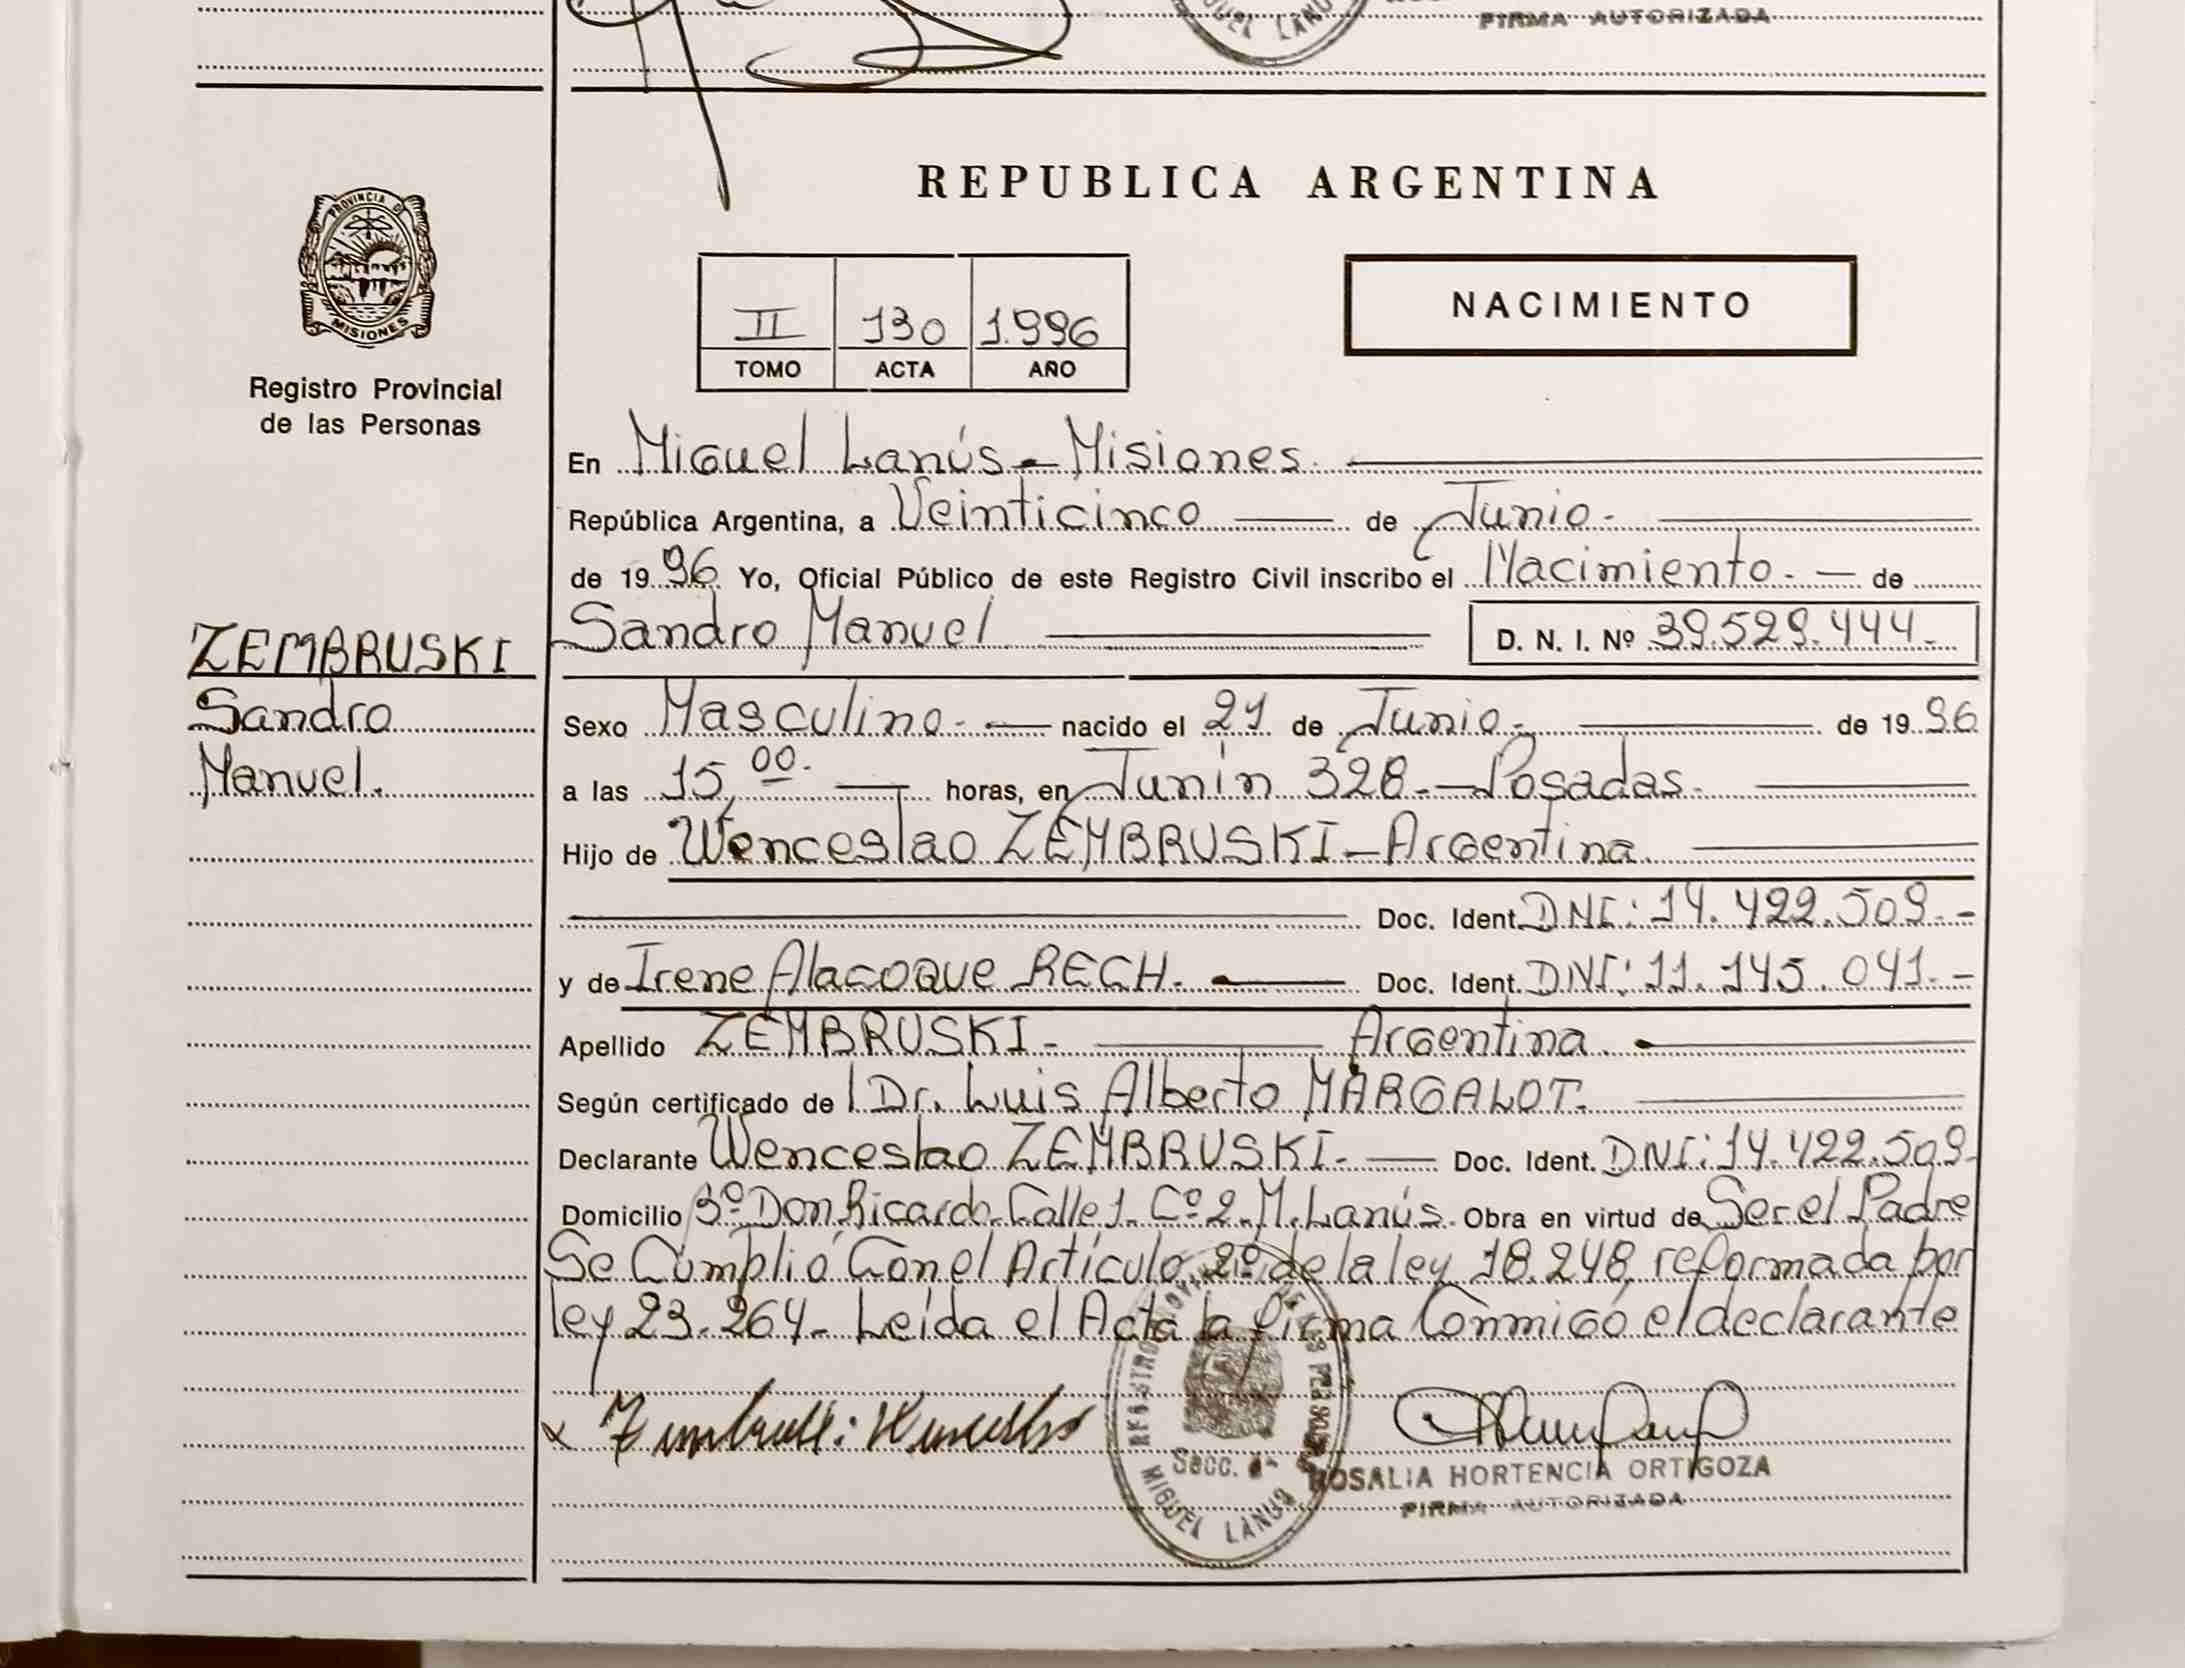 FIRMA AUTORIZADA
MIGUEL LANÚS
REPUBLICA ARGENTINA
PROVINCIA DE
MISIONES
Registro Provincial
de las Personas
II 130 1.996
TOMO ACTA AÑO
NACIMIENTO
En Miguel Lanús - Misiones.
República Argentina, a Veinticinco de Junio.
de 1996 Yo, Oficial Público de este Registro Civil inscribo el Nacimiento. de
Sandro Manuel D. N. I. Nº 39.529.444.-
ZEMBRUSKI
Sandro
Manuel.
Sexo Masculino. nacido el 21 de Junio. de 1996
a las 15,00. horas, en Junín 328. - Posadas.
Hijo de Wenceslao ZEMBRUSKI - Argentina.
Doc. Ident. DNI: 14.422.509.-
y de Irene Alacoque RECH. Doc. Ident. DNI: 11.145.041.-
Apellido ZEMBRUSKI. Argentina.
Según certificado de Dr. Luis Alberto MARGALOT.
Declarante Wenceslao ZEMBRUSKI. Doc. Ident. DNI: 14.422.509.
Domicilio Bº Don Ricardo. Calle 1. Cº 2. M. Lanús. Obra en virtud de Ser el Padre
Se Cumplió Con el Artículo 2º de la ley 18.248, reformada por
ley 23.264 - Leída el Acta la firma Conmigo el declarante
REGISTRO PROVINCIAL DE LAS PERSONAS
Secc.
MIGUEL LANUS
ROSALIA HORTENCIA ORTIGOZA
FIRMA AUTORIZADA